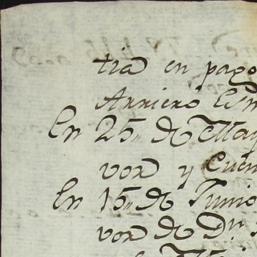 tia en pago
Arriero
En 25,, de May
vor y Cuen
En 15,, de Junio
vor de Dn